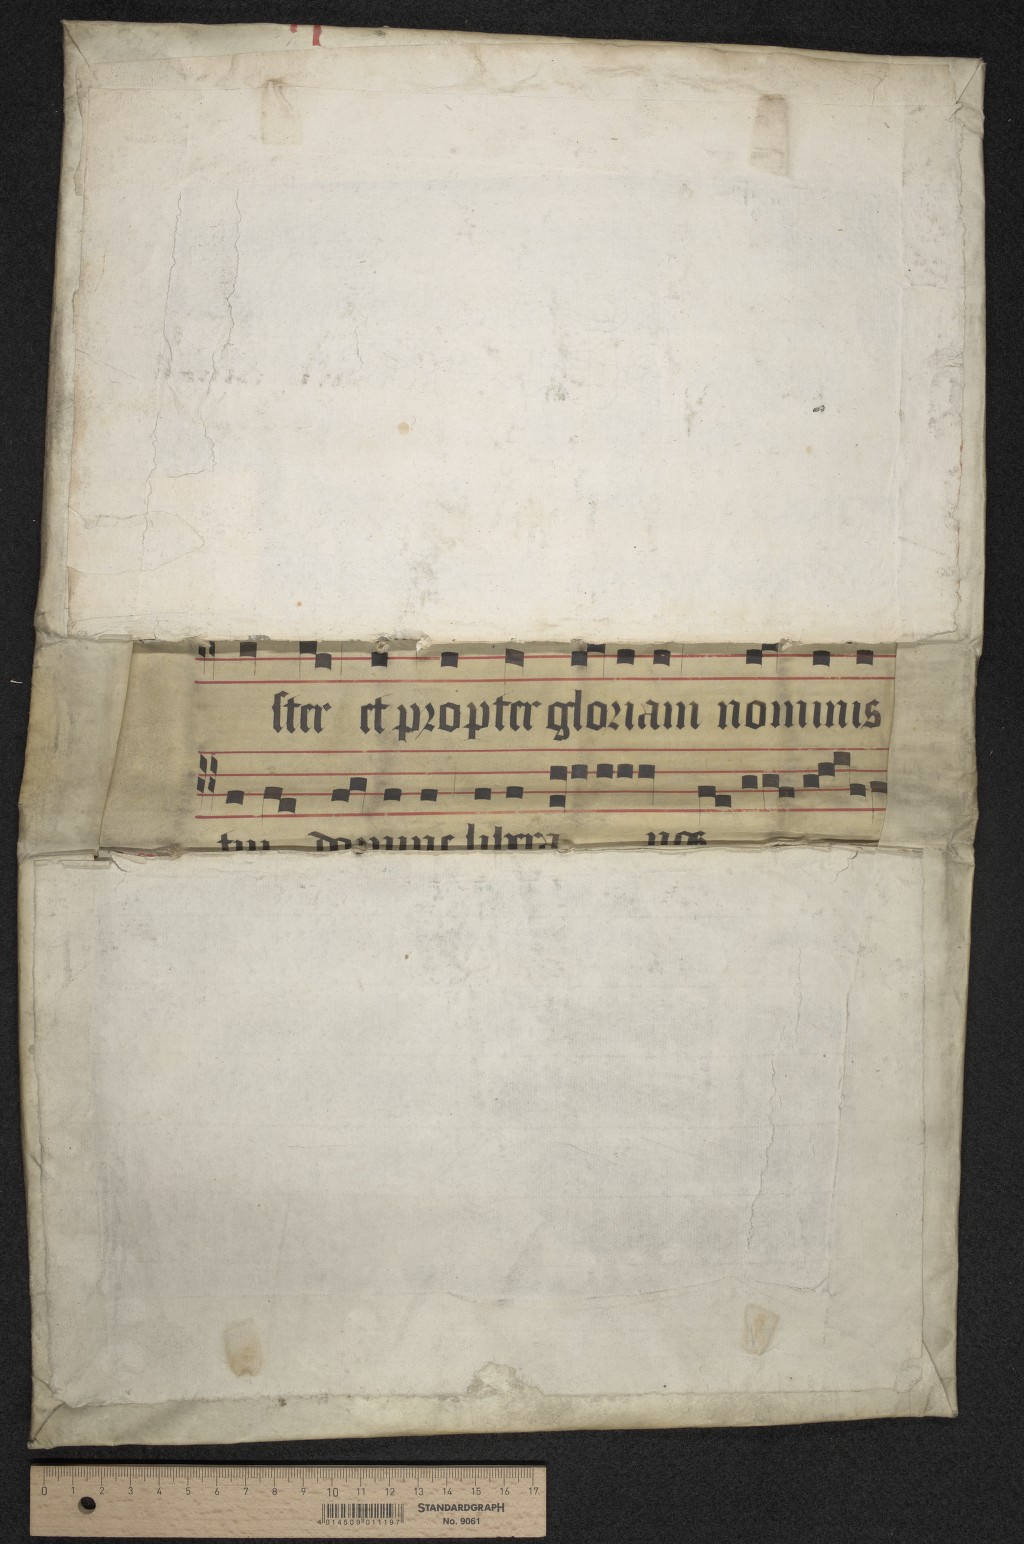 ster et propter gloriam nominis
tui domine libera nos
0 1 2 3 4 5 6 7 8 9 10 11 12 13 14 15 16 17
4 014509 011197
STANDARDGRAPH
No. 9061